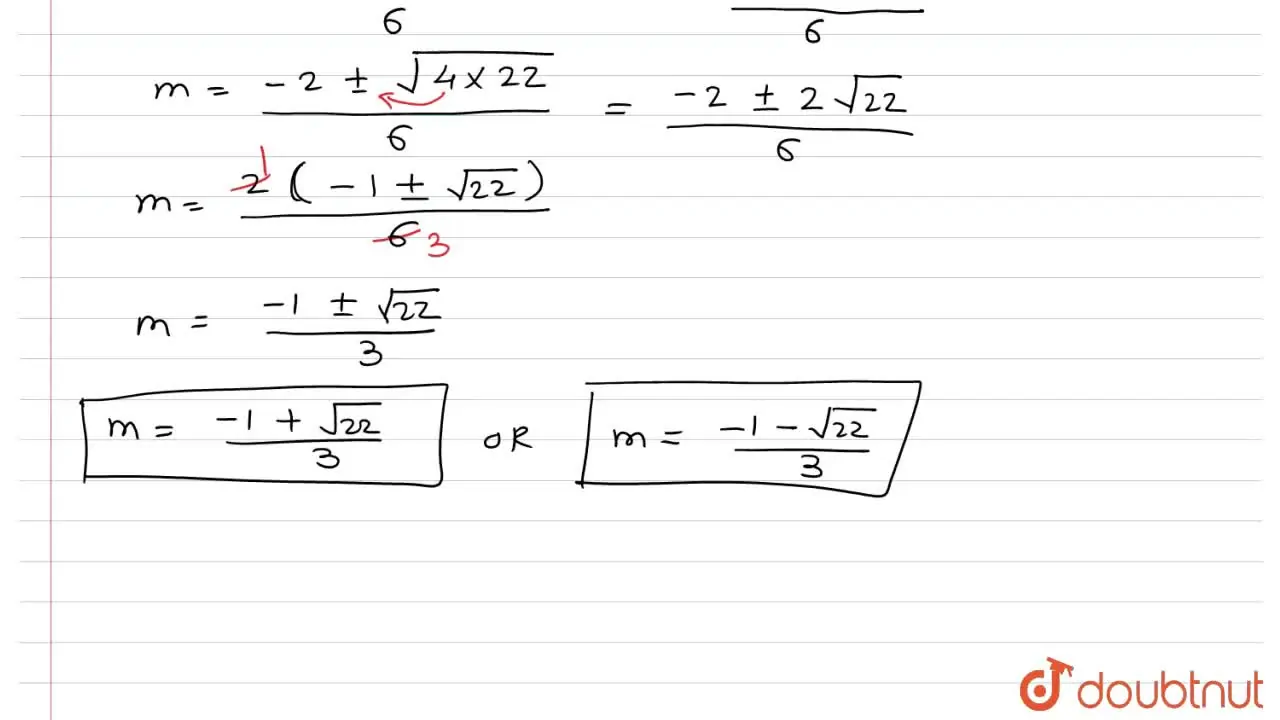 6 6
m = -2 ± √4×22 / 6 = -2 ± 2√22 / 6
m = 2 1 ( -1 ± √22 ) / 6 3
m = -1 ± √22 / 3
m = -1 + √22 / 3 OR m = -1 - √22 / 3
doubtnut